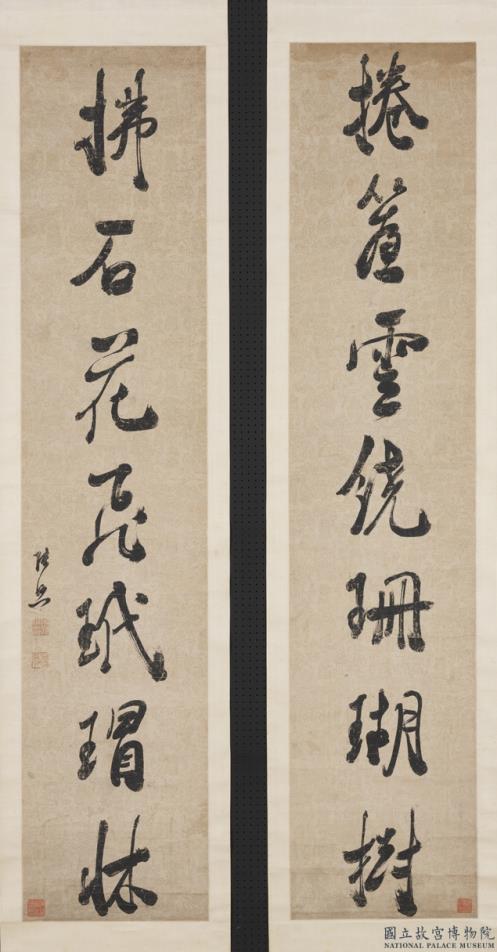 捲簾雲繞珊瑚樹
拂石花飛玳瑁牀
張照
國立故宮博物院
NATIONAL PALACE MUSEUM